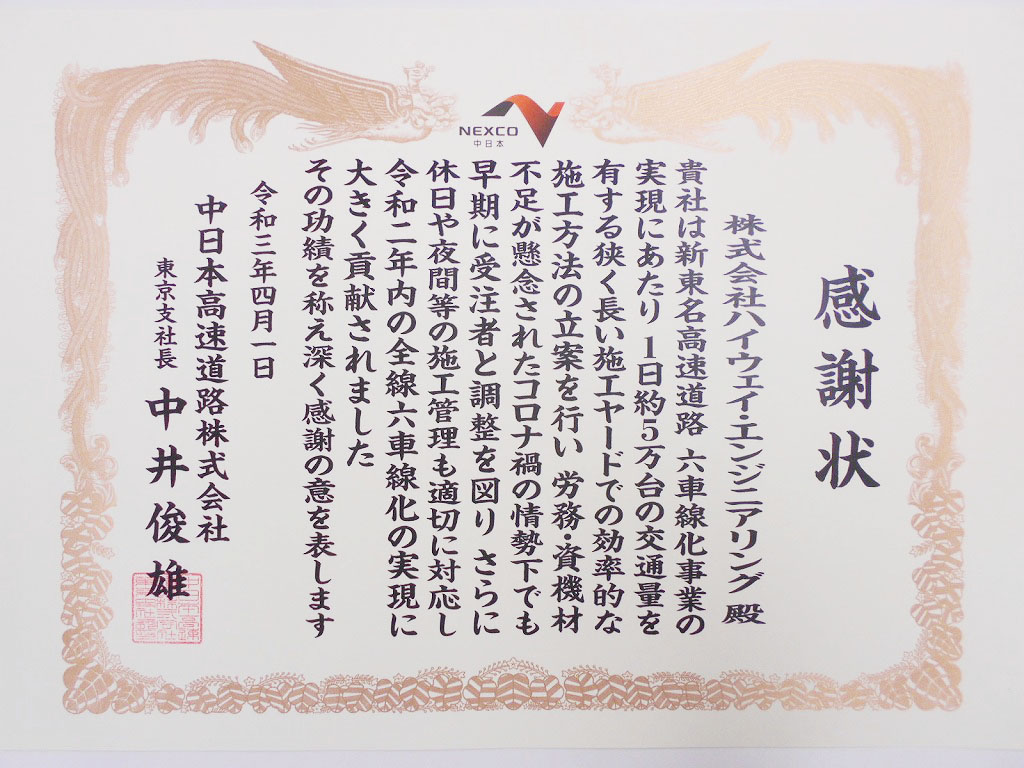 NEXCO
中日本
感謝状
株式会社ハイウェイ・エンジニアリング 殿
貴社は新東名高速道路 六車線化事業の
実現にあたり 1日約5万台の交通量を
有する狭く長い施工ヤードでの効率的な
施工方法の立案を行い 労務・資機材
不足が懸念されたコロナ禍の情勢下でも
早期に受注者と調整を図り さらに
休日や夜間等の施工管理も適切に対応し
令和二年内の全線六車線化の実現に
大きく貢献されました
その功績を称え深く感謝の意を表します
令和三年四月一日
中日本高速道路株式会社
東京支社長 中井俊雄